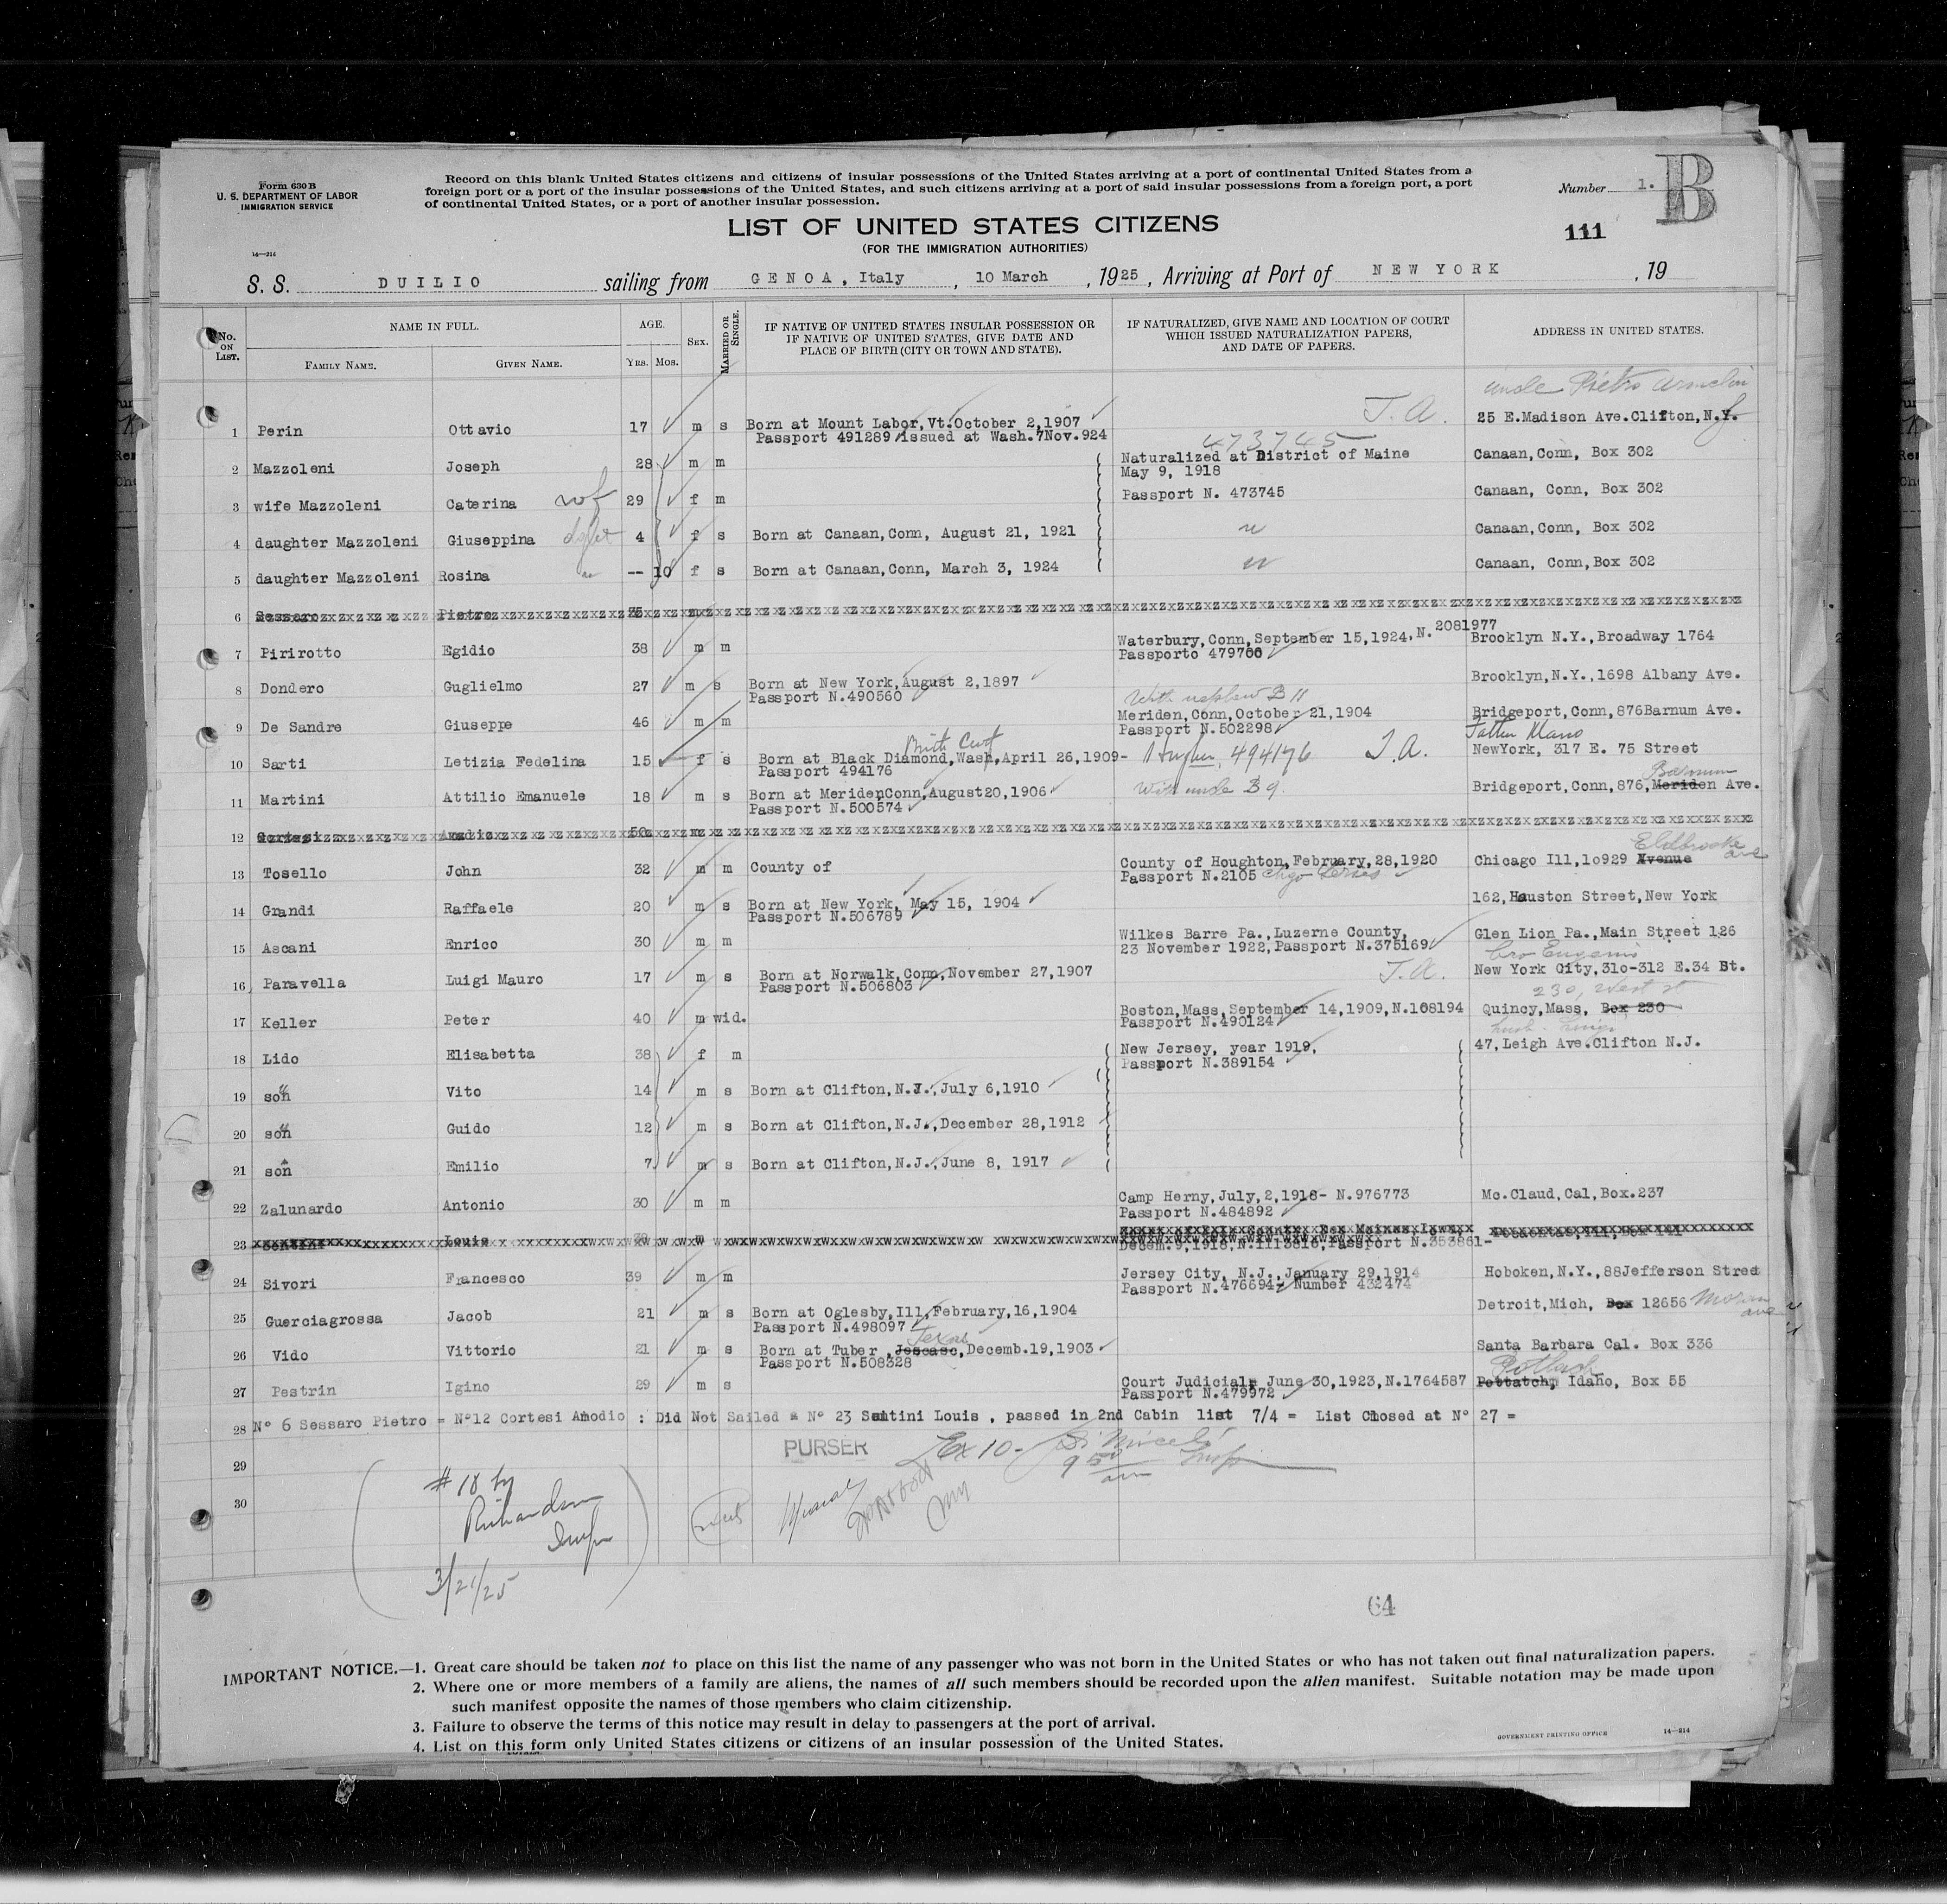 Form 630 B
U. S. DEPARTMENT OF LABOR
IMMIGRATION SERVICE
14—214
Record on this blank United States citizens and citizens of insular possessions of the United States arriving at a port of continental United States from a
foreign port or a port of the insular possessions of the United States, and such citizens arriving at a port of said insular possessions from a foreign port, a port
of continental United States, or a port of another insular possession.
Number 1.
B
111
LIST OF UNITED STATES CITIZENS
(FOR THE IMMIGRATION AUTHORITIES)
S. S. DUILIO sailing from GENOA, Italy, 10 March, 1925, Arriving at Port of NEW YORK, 19
No. ON LIST. NAME IN FULL. AGE. SEX. MARRIED OR SINGLE. IF NATIVE OF UNITED STATES INSULAR POSSESSION OR IF NATIVE OF UNITED STATES, GIVE DATE AND PLACE OF BIRTH (CITY OR TOWN AND STATE). IF NATURALIZED, GIVE NAME AND LOCATION OF COURT WHICH ISSUED NATURALIZATION PAPERS, AND DATE OF PAPERS. ADDRESS IN UNITED STATES.
FAMILY NAME. GIVEN NAME. YRS. MOS.
uncle Pietro Armelin
1 Perin Ottavio 17 m s Born at Mount Labor, Vt. October 2,1907 T.A. 25 E.Madison Ave.Clifton, N.
Passport 491289 issued at Wash. 7Nov.924
473745
2 Mazzoleni Joseph 28 m m Naturalized at District of Maine Canaan, Conn, Box 302
May 9, 1918
3 wife Mazzoleni Caterina wf 29 f m Passport N. 473745 Canaan, Conn, Box 302
4 daughter Mazzoleni Giuseppina 4 f s Born at Canaan,Conn, August 21, 1921 Canaan,Conn, Box 302
5 daughter Mazzoleni Rosina -- 10 f s Born at Canaan,Conn, March 3, 1924 Canaan, Conn,Box 302
6 Sessaro Pietro
7 Pirirotto Egidio 38 m m Waterbury,Conn,September 15,1924,N. 2081977 Brooklyn N.Y.,Broadway 1764
Passporto 479700
8 Dondero Guglielmo 27 m s Born at New York,August 2,1897 Brooklyn,N.Y.,1698 Albany Ave.
Passport N.490560
With nephew B 11
9 De Sandre Giuseppe 46 m m Meriden,Conn,October 21,1904 Bridgeport,Conn,876Barnum Ave.
Passport N.502298
Birth Cert Father Mario
10 Sarti Letizia Fedelina 15 f s Born at Black Diamond,Wash,April 26,1909- 494176 T.A. NewYork, 317 E. 75 Street
Passport 494176
Barnum
11 Martini Attilio Emanuele 18 m s Born at Meriden,Conn,August20,1906 With uncle B 9. Bridgeport,Conn,876,Meriden Ave.
Passport N.500574
12 Cortesi Amodio 50 m
13 Tosello John 32 m m County of County of Houghton,February,28,1920 Chicago Ill,1o929 Avenue
Passport N.2105 Chgo Series
14 Grandi Raffaele 20 m s Born at New York, May 15, 1904 162,Houston Street,New York
Passport N.506789
15 Ascani Enrico 30 m m Wilkes Barre Pa.,Luzerne County, Glen Lion Pa.,Main Street 126
23 November 1922,Passport N.375169
bro Eugenio
16 Paravella Luigi Mauro 17 m s Born at Norwalk,Conn,November 27,1907 T.A. New York City,31o-312 E.34 St.
Passport N.506803
230, West st
17 Keller Peter 40 m wid. Boston,Mass,September 14,1909,N.108194 Quincy,Mass, Box 230
Passport N.490124
husb. Luigi
18 Lido Elisabetta 38 f m New Jersey, year 1919, 47,Leigh Ave.Clifton N.J.
Passport N.389154
19 son Vito 14 m s Born at Clifton,N.J.,July 6,1910
20 son Guido 12 m s Born at Clifton,N.J.,December 28,1912
21 son Emilio 7 m s Born at Clifton,N.J.,June 8, 1917
22 Zalunardo Antonio 30 m m Camp Herny,July,2,1918- N.976773 Mc.Claud,Cal,Box.237
Passport N.484892
23 Louis m
Decem.9,1918,N.1113816,Passport N.353861-
24 Sivori Francesco 39 m m Jersey City, N.J.,January 29,1914 Hoboken,N.Y.,88Jefferson Stree
Passport N.476694- Number 432474
25 Guerciagrossa Jacob 21 m s Born at Oglesby,Ill,February,16,1904 Detroit,Mich, Box 12656 Moran ave
Passport N.498097
Texas
26 Vido Vittorio 21 m s Born at Tuber, Decemb.19,1903 Santa Barbara Cal. Box 336
Passport N.508328
Potlach
27 Pestrin Igino 29 m s Court Judicial, June 30,1923,N.1764587 Pottatch, Idaho, Box 55
Passport N.479972
28 N° 6 Sessaro Pietro = N°12 Cortesi Amodio : Did Not Sailed = N° 23 Santini Louis , passed in 2nd Cabin list 7/4 = List Closed at N° 27 =
29 PURSER Ex 10- 9 50 am Insp
30
# 18 by
Richardson
Insp
3/21/25
64
IMPORTANT NOTICE.—1. Great care should be taken not to place on this list the name of any passenger who was not born in the United States or who has not taken out final naturalization papers.
2. Where one or more members of a family are aliens, the names of all such members should be recorded upon the alien manifest. Suitable notation may be made upon
such manifest opposite the names of those members who claim citizenship.
3. Failure to observe the terms of this notice may result in delay to passengers at the port of arrival.
4. List on this form only United States citizens or citizens of an insular possession of the United States.
GOVERNMENT PRINTING OFFICE 14—214